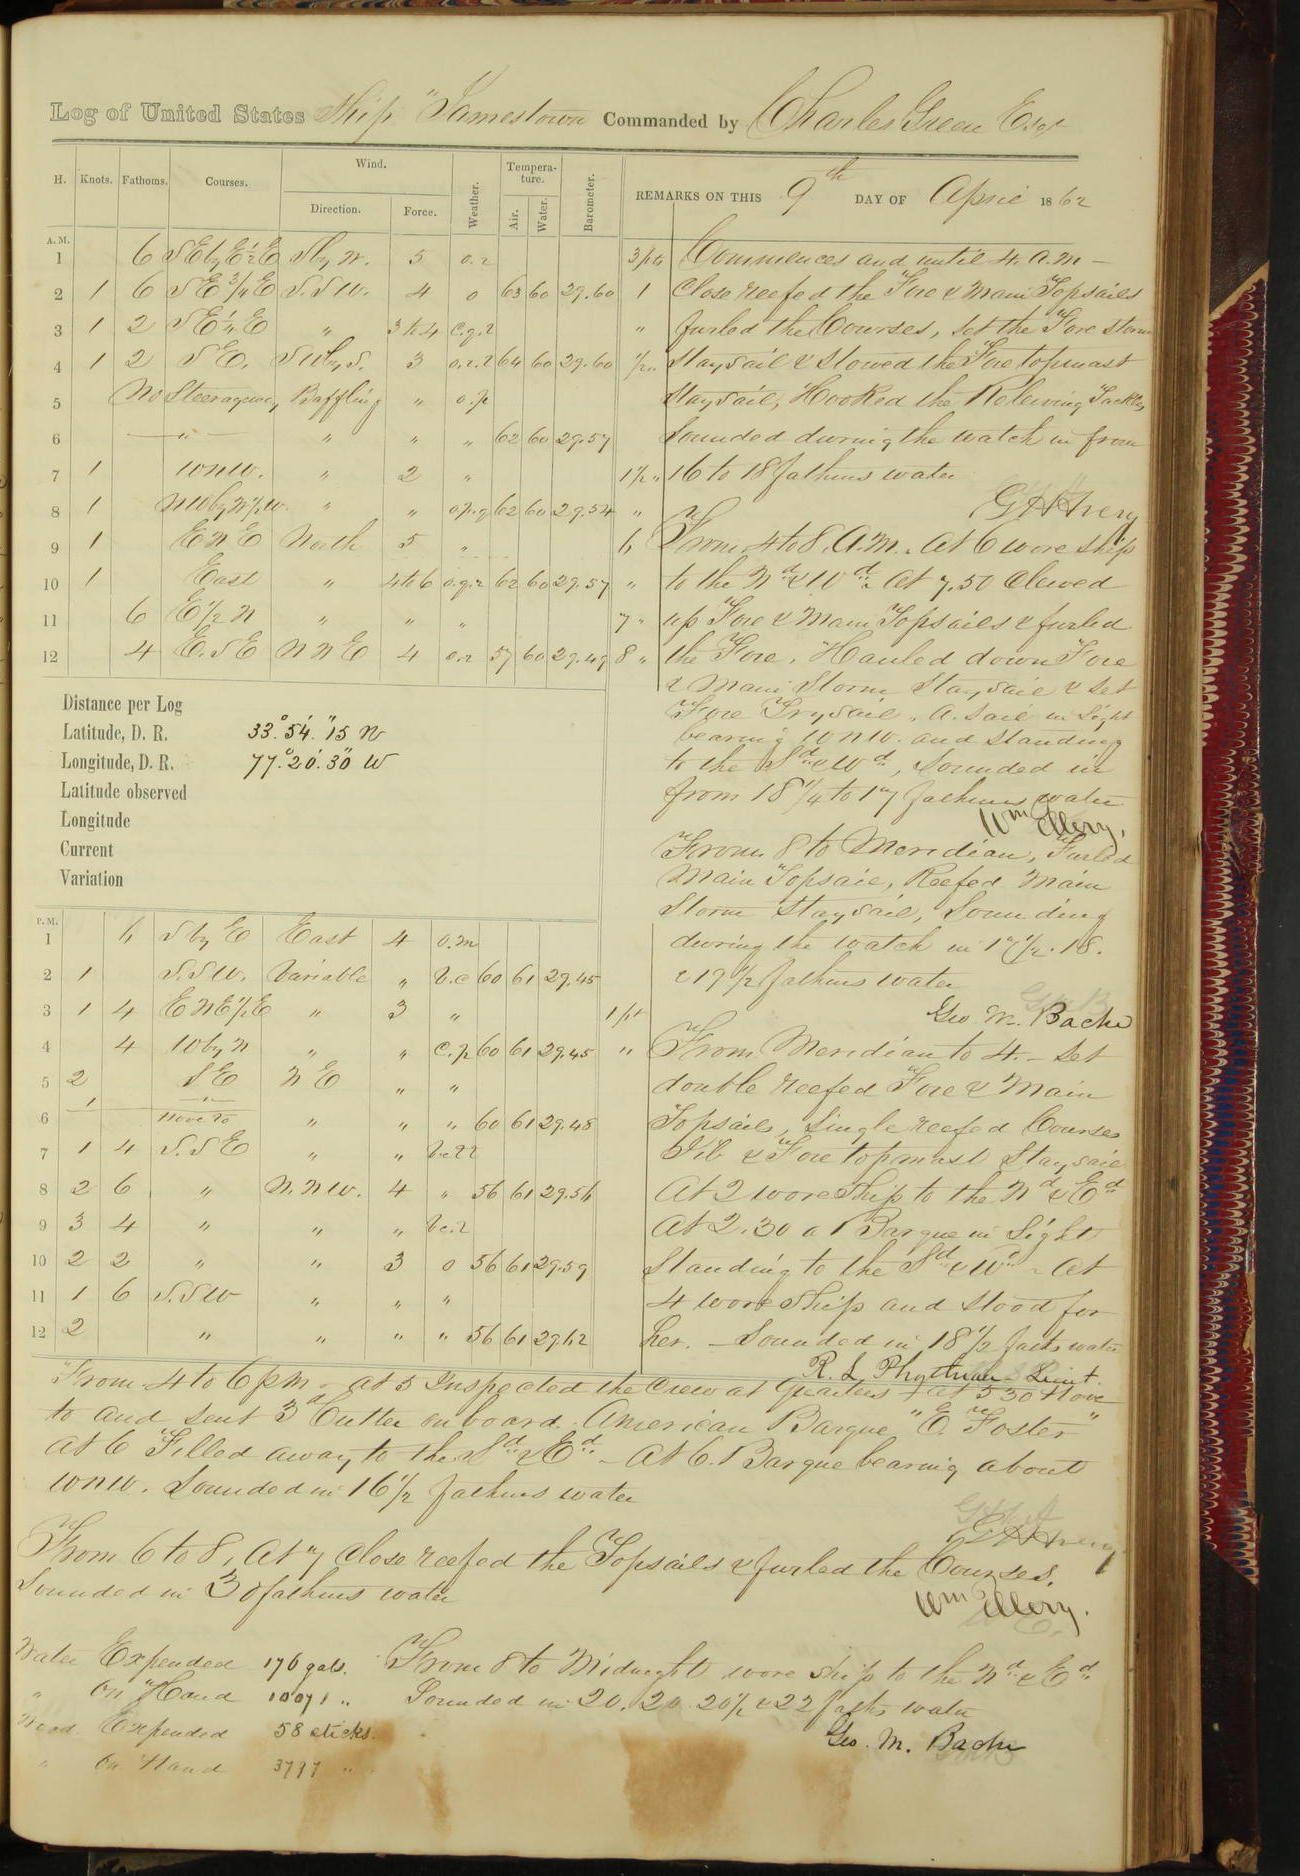 Log of United States Ship "Jamestown Commanded by Charles Green Esqr
H. Knots. Fathoms. Courses. Wind. Direction. Force. Weather. Temperature. Air. Water. Barometer. REMARKS ON THIS 9th DAY OF April 1862
A.M.
1 6 SEbyE½E SbyW. 5 o.r 3 pts
2 1 6 SE¾E S.SW. 4 o 63 60 29.60 1
3 1 2 SE¼E " 3 to 4 c.q.r "
4 1 2 SE. SWbyS. 3 o.r.l 64 60 29.60 ½ "
5 No Steerageway Baffling " o.p
6 " " " " 62 60 29.57
7 1 WNW. " 2 " 1½ "
8 1 NWbyN½W. " " o.p.q 62 60 29.54 "
9 1 ENE North 5 " 6
10 1 East " 4 to 6 o.q.r 62 60 29.57 "
11 6 E½N " " " 7 "
12 4 E.SE NNE 4 o.r 57 60 29.49 8 "
Commences and until 4. a.m -
Close reefed the Fore & Main Topsails
furled the Courses, set the Fore storm
Staysail & stowed the Fore topmast
Staysail, Hooked the Releiving Tackles,
Sounded during the watch in from
16 to 18 fathms water
GHAvery
From 4 to 8. A.M. At 6 wore ship
to the Nd & Wd. At 7.50 Clewed
up Fore & Main Topsails & furled
the Fore. Hauled down Fore
& Main Storm Staysail & set
Fore Trysail. A. Sail in Sight
bearing WNW. and Standing
to the Sd & Wd, Sounded in
from 18¼ to 17 fathms water
Wm Ellery.
From 8 to Meridian, Furled
Main Topsail, Reefed Main
Storm Staysail, Sounding
during the watch in 17½. 18.
& 19½ fathms water
Geo. M. Bache
Distance per Log
Latitude, D. R. 33° 54' 15" N
Longitude, D. R. 77° 20' 30" W
Latitude observed
Longitude
Current
Variation
P.M.
1 6 S by E East 4 o.m
2 1 S.SW. Variable " b.c 60 61 29.45
3 1 4 ENE½E " 3 " 1 pt
4 4 W by N " " c.p 60 61 29.45 "
5 2 SE NE " "
6 1 " Hove to " " " 60 61 29.48
7 1 4 S.SE " "
8 2 6 " N.NW. 4 " 56 61 29.56
9 3 4 " " " bc.r
10 2 2 " " 3 o 56 61 29.59
11 1 6 S.SW " " "
12 2 " " " " 56 61 29.62
From Meridian to 4. - Set
double reefed Fore & Main
Topsails, Single reefed Courses
Jib & Fore topmast Staysail
At 2 wore Ship to the Nd & Ed
At 2.30 a Barque in Sight
Standing to the Sd & Wd - At
4 wore Ship and stood for
her. - Sounded in 18½ faths water
R. L. Phythian Lieut.
From 4 to 6 p.m. at 5 Inspected the Crew at Quarters, at 5 30 Hove
to and sent 3d Cutter on board American Barque "E. Foster"
At 6 Filled away to the Sd & Ed - At 6. Barque bearing about
WNW. Sounded in 16½ fathms water
GHAvery
From 6 to 8, At 7 Close reefed the Topsails & furled the Courses.
Sounded in 30 fathms water
Wm Ellery.
Water Expended 176 gals. From 8 to Midnight wore ship to the Nd & Ed
" On Hand 10071 " Sounded in 20. 20. 20½ & 22 faths water
Wood Expended 58 sticks. Geo. M. Bache
" On Hand "